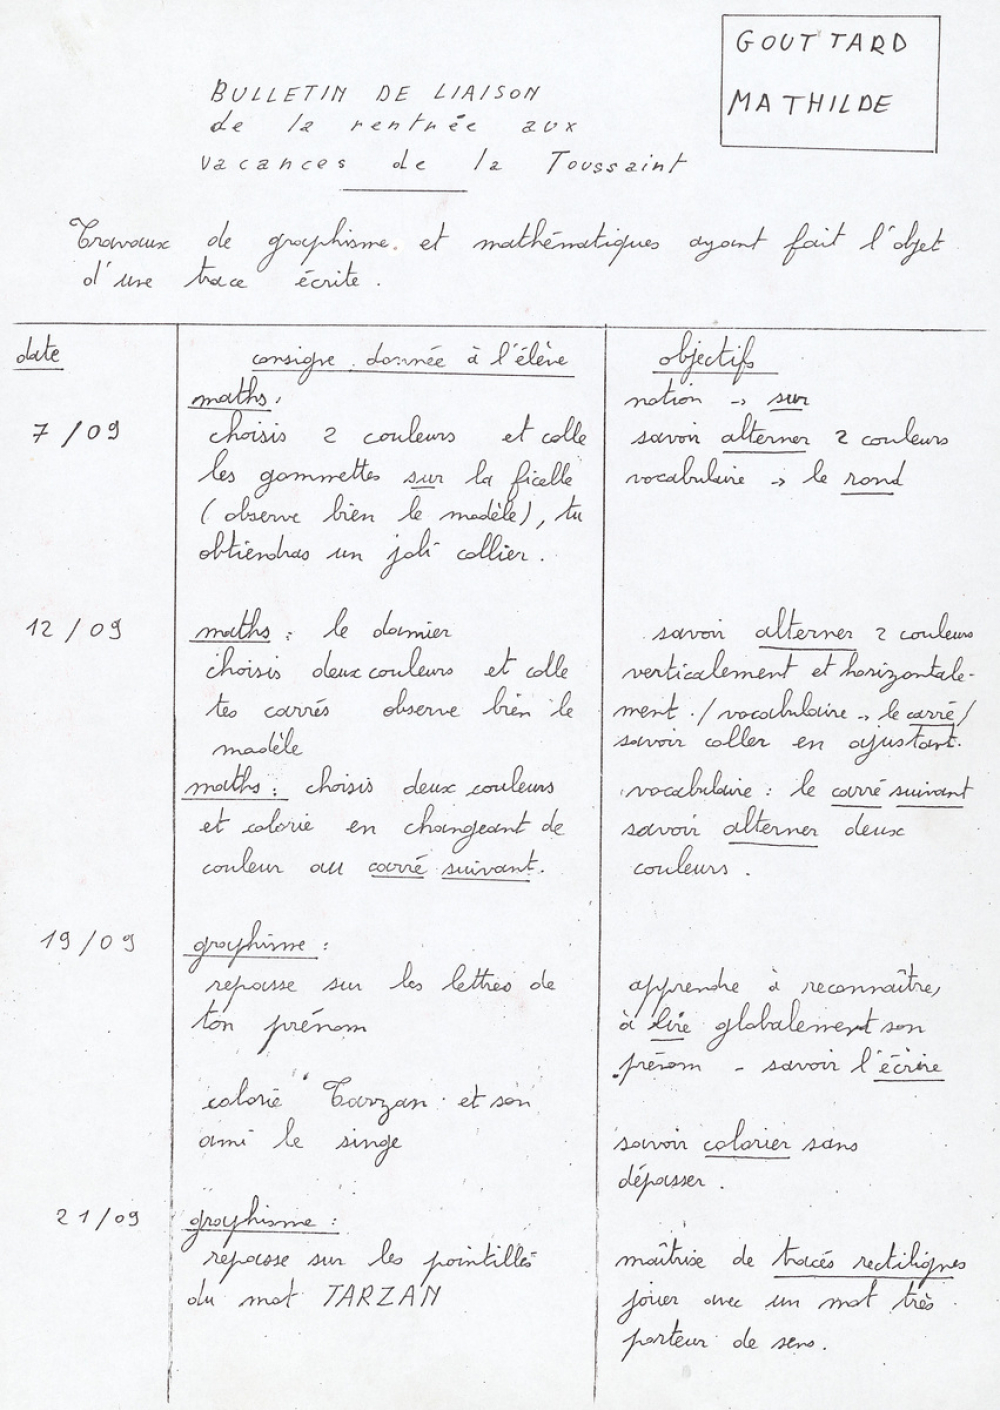 GOUTTARD
MATHILDE
BULLETIN DE LIAISON
de la rentrée aux
vacances de la Toussaint
Travaux de graphisme et mathématiques ayant fait l'objet
d'une trace écrite.
date
consigne donnée à l'élève
objectifs
7/09
maths,
choisis 2 couleurs et colle
les gommettes sur la ficelle
(observe bien le modèle), tu
obtiendras un joli collier.
notion → sur
savoir alterner 2 couleurs
vocabulaire → le rond
12/09
maths : le damier
choisis deux couleurs et colle
tes carrés observe bien le
modèle
maths : choisis deux couleurs
et colorie en changeant de
couleur au carré suivant.
savoir alterner 2 couleurs
verticalement et horizontale-
ment. / vocabulaire → le carré /
savoir coller en ajustant.
vocabulaire : le carré suivant
savoir alterner deux
couleurs.
19/09
graphisme :
repasse sur les lettres de
ton prénom
colorie Tarzan et son
ami le singe
apprendre à reconnaître,
à lire globalement son
prénom - savoir l'écrire
savoir colorier sans
dépasser.
21/09
graphisme :
repasse sur les pointillés
du mot TARZAN
maîtrise de tracés rectilignes
jouer avec un mot très
porteur de sens.